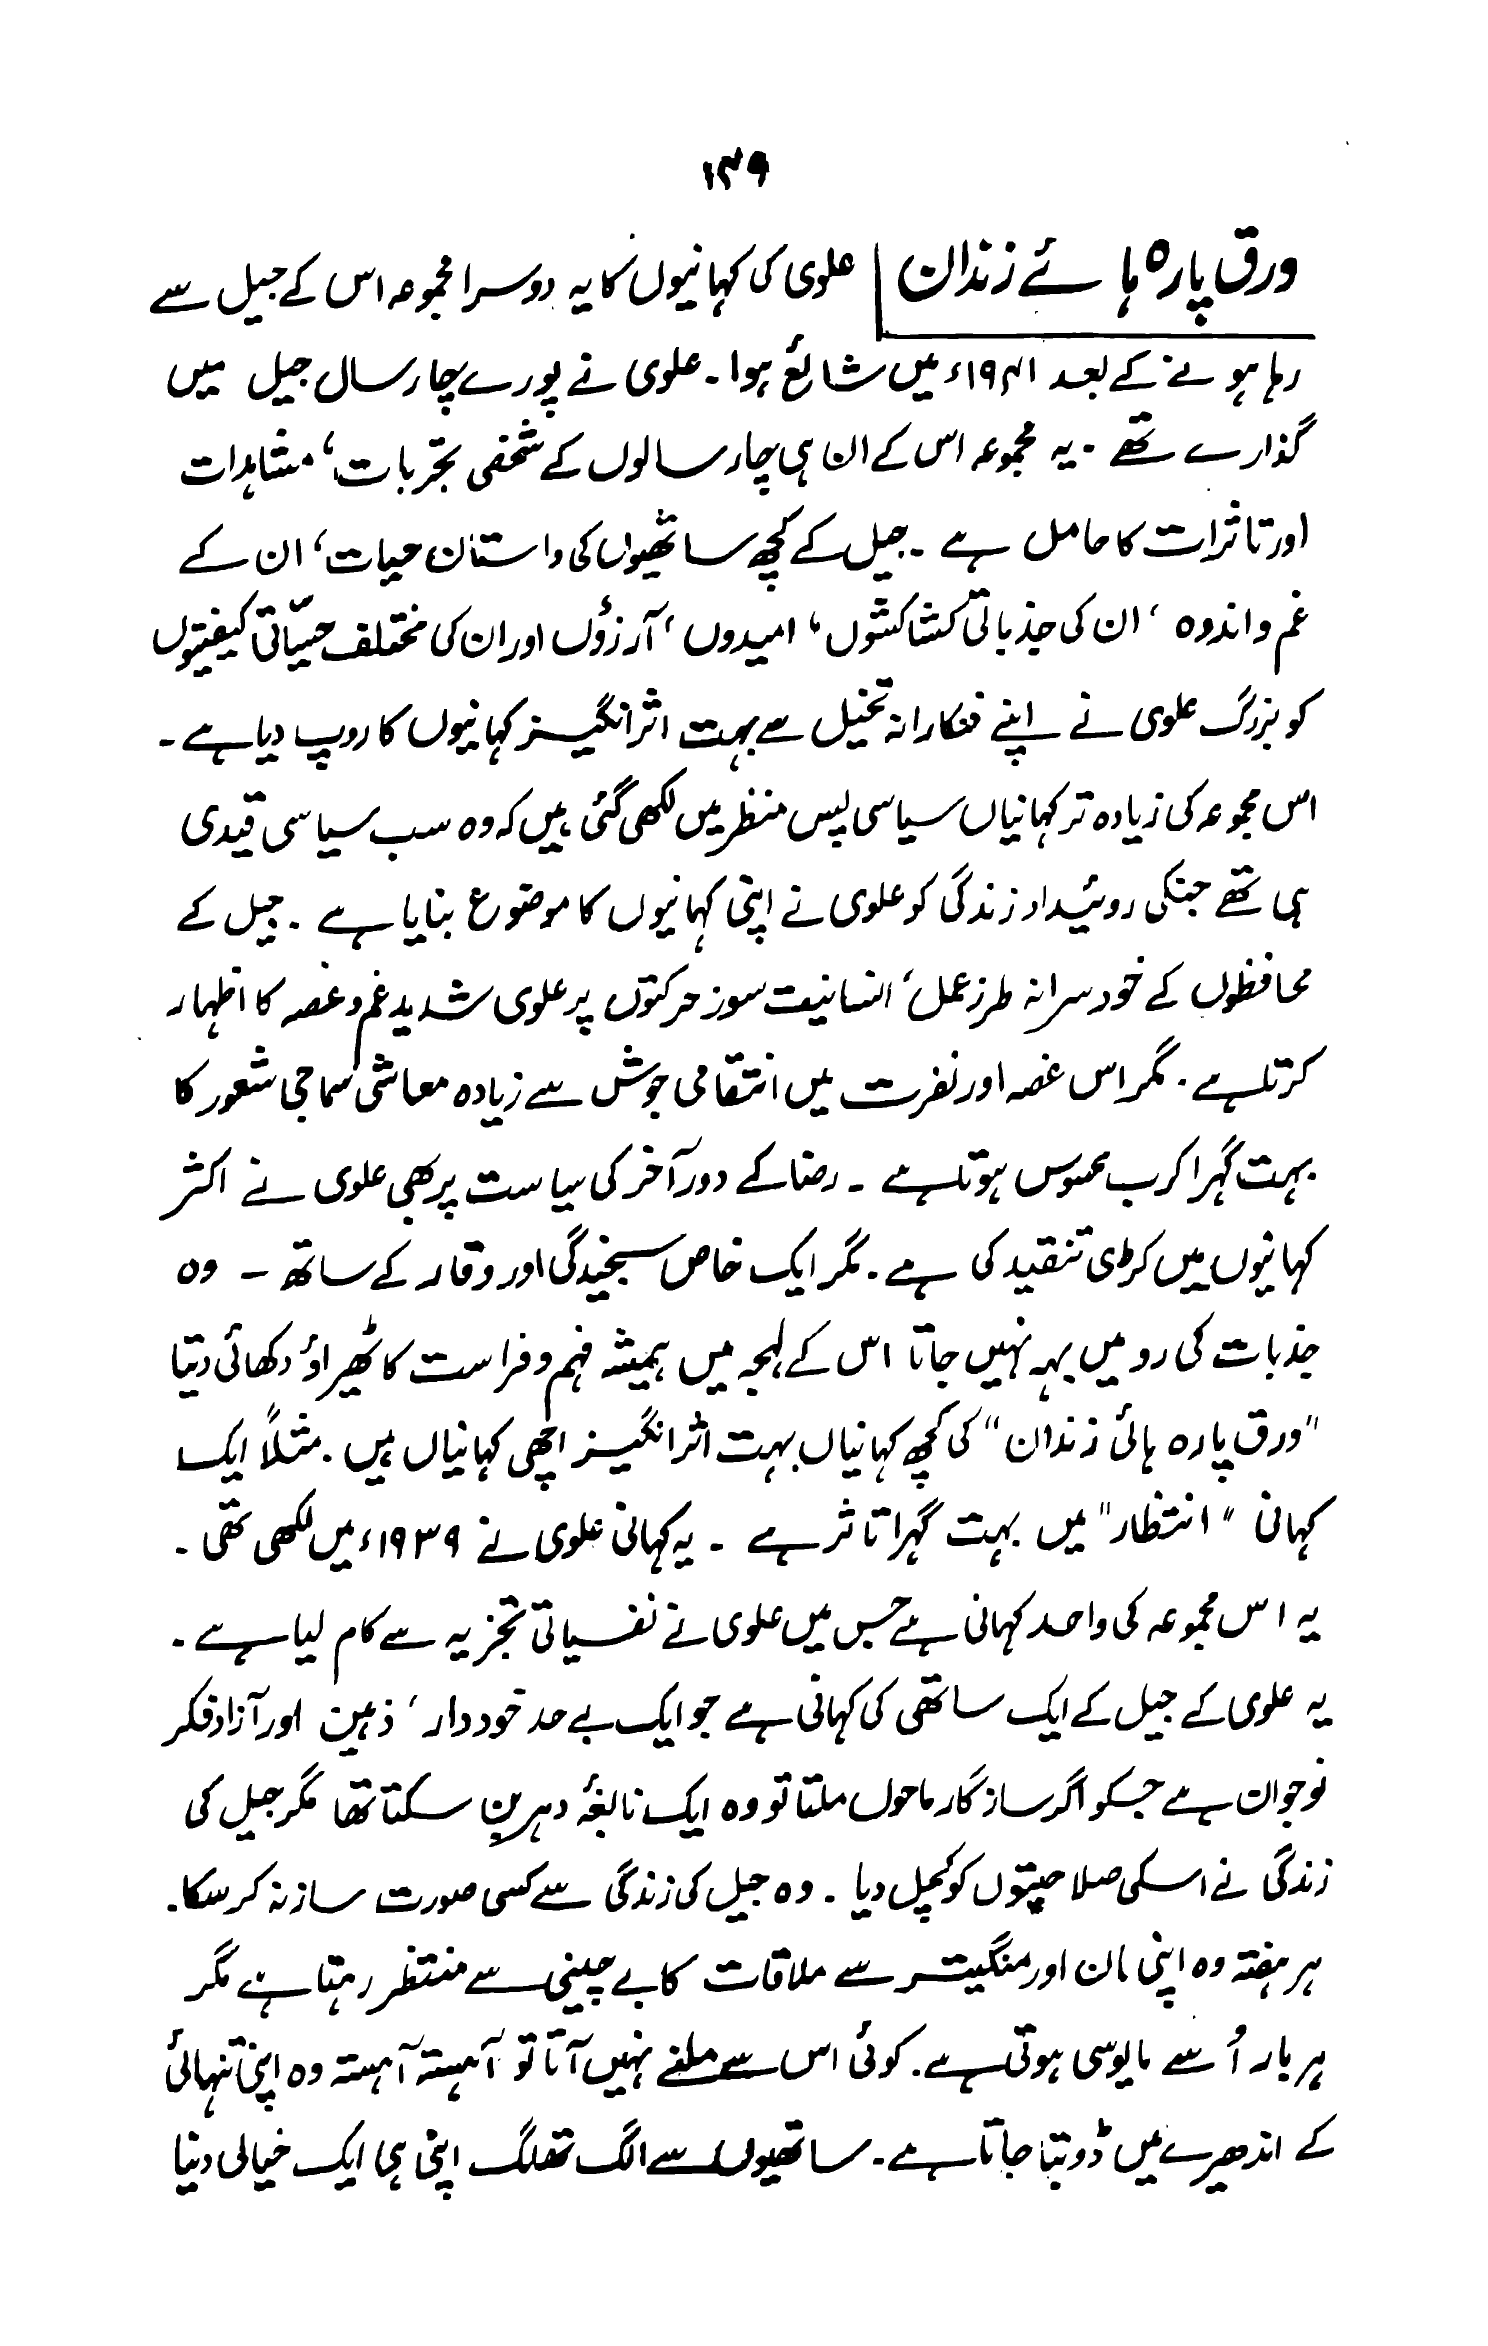 ۱۳۹
ورق پارہ ہائے زندان علوی کی کہانیوں کا یہ دوسرا مجموعہ اس کے جیل سے
رہا ہونے کے بعد ۱۹۴۱ء میں شائع ہوا۔ علوی نے پورے چار سال جیل میں
گذارے تھے۔ یہ مجموعہ اس کے ان ہی چار سالوں کے شخصی تجربات، مشاہدات
اور تاثرات کا حامل ہے۔ جیل کے کچھ ساتھیوں کی داستان حیات، ان کے
غم و اندوہ، ان کی جذباتی کشاکشوں، امیدوں، آرزؤں اور ان کی مختلف حسیّاتی کیفیتوں
کو بزرگ علوی نے اپنے فنکارانہ تخیل سے بہت اثر انگیز کہانیوں کا روپ دیا ہے۔
اس مجموعہ کی زیادہ تر کہانیاں سیاسی پس منظر میں لکھی گئی ہیں کہ وہ سب سیاسی قیدی
ہی تھے جنکی روئیداد زندگی کو علوی نے اپنی کہانیوں کا موضوع بنایا ہے۔ جیل کے
محافظوں کے خود سرانہ طرز عمل، انسانیت سوز حرکتوں پر علوی شدید غم و غصہ کا اظہار
کرتا ہے۔ مگر اس غصہ اور نفرت میں انتقامی جوش سے زیادہ معاشی سماجی شعور کا
بہت گہرا کرب محسوس ہوتا ہے۔ رضا کے دور آخر کی سیاست پر بھی علوی نے اکثر
کہانیوں میں کڑی تنقید کی ہے۔ مگر ایک خاص سنجیدگی اور وقار کے ساتھ ۔ وہ
جذبات کی رو میں بہہ نہیں جاتا اس کے لہجہ میں ہمیشہ فہم و فراست کا ٹھیراؤ دکھائی دیتا
"ورق پارہ ہائی زندان" کی کچھ کہانیاں بہت اثر انگیز اچھی کہانیاں ہیں۔ مثلاً ایک
کہانی "انتظار" میں بہت گہرا تاثر ہے ۔ یہ کہانی علوی نے ۱۹۳۹ء میں لکھی تھی۔
یہ اس مجموعہ کی واحد کہانی ہے جس میں علوی نے نفسیاتی تجزیہ سے کام لیا ہے۔
یہ علوی کے جیل کے ایک ساتھی کی کہانی ہے جو ایک بے حد خوددار، ذہین اور آزاد فکر
نوجوان ہے جسکو اگر سازگار ماحول ملتا تو وہ ایک نابغۂ دہر بن سکتا تھا مگر جیل کی
زندگی نے اسکی صلاحیتوں کو کچل دیا۔ وہ جیل کی زندگی سے کسی صورت ساز نہ کر سکا۔
ہر ہفتہ وہ اپنی مان اور منگیتر سے ملاقات کا بے چینی سے منتظر رہتا ہے مگر
ہر بار اُسے مایوسی ہوتی ہے۔ کوئی اس سے ملنے نہیں آتا تو آہستہ آہستہ وہ اپنی تنہائی
کے اندھیرے میں ڈوبتا جاتا ہے۔ ساتھیوں سے الگ تھلگ اپنی ہی ایک خیالی دنیا